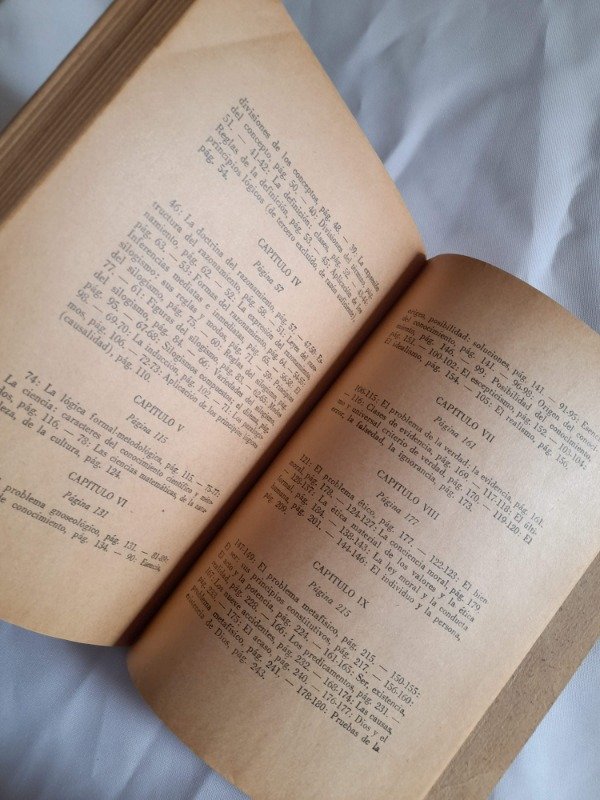 divisiones de los conceptos, pág. 48. — 39: La expresión
del concepto, pág. 50. — 40: Divisiones del término, pág.
51. — 41-42: La definición: clases, pág. 52. —
Reglas de la definición, pág. 53. — 45: Aplicación de los
principios lógicos (de tercero excluido, de razón suficiente),
pág. 54.
CAPITULO IV
Página 57
46: La doctrina del razonamiento, pág. 57. —
tructura del razonamiento, pág. 58. —
namiento, pág. 62. — 52: La expresión del razonamiento,
pág. 63. — 53: Formas del razonamiento, pág. 64. —
Inferencias mediatas e inmediatas, pág.
silogismo; sus reglas y modos, pág. 71. —
del silogismo, pág. 75. — 60: Leyes del silogismo, pág.
77. — 61: Figuras del silogismo, pág.
del silogismo, pág. 84. — 66: Variedades del silogismo,
pág. 95. — 67-68: Silogismos compuestos, pág.
98. — 69-70: La inducción, pág. 102. — 71: Los
mos, pág. 106. — 72-73: Aplicación de los principios lógicos
(causalidad), pág. 110.
CAPITULO V
Página 115
74: La lógica formal-metodológica, pág. 115. — 75-77:
La ciencia: caracteres del conocimiento científico;
dos, pág. 116. — 78: Las ciencias matemáticas, de la
leza, de la cultura, pág. 124.
CAPITULO VI
Página 131
problema gnoseológico, pág. 131. —
de conocimiento, pág. 134. — 90:
origen, posibilidad: soluciones, pág. 141. — 91-95:
del conocimiento, pág. 141. — 96-98: Origen del conoci-
miento, pág. 146. — 99: Posibilidad del conocimiento,
pág. 151. — 100-102: El escepticismo, pág. 152. — 103-104:
El idealismo, pág. 154. — 105: El realismo, pág. 156.
CAPITULO VII
Página 161
106-115: El problema de la verdad; la evidencia, pág. 161.
— 116: Clases de evidencia, pág. 169. — 117-118: El últi-
mo y universal criterio de verdad, pág. 170. — 119-120: El
error, la falsedad, la ignorancia, pág. 173.
CAPITULO VIII
Página 177
121: El problema ético, pág. 177. — 122-123: El bien
moral, pág. 178. — 124-127: La conciencia moral, pág. 179.
— 128-137: La ética material de los valores y la ética
formal, pág. 184. — 138-143: La ley moral y la conducta
humana, pág. 201. — 144-146: El individuo y la persona,
pág. 209
CAPITULO IX
Página 215
147-149: El problema metafísico, pág. 215. — 150-155:
El ser, sus principios constitutivos, pág. 217. — 156-160:
El acto y la potencia, pág. 224. — 161-165: Ser, existencia,
realidad, pág. 226. — 166: Los predicamentos, pág. 231.
167: Los nueve accidentes, pág. 232. — 168-174: Las causas,
pág. 235. — 175: El acaso, pág. 240. — 176-177: Dios y el
problema metafísico, pág. 241. — 178-180: Pruebas de la
existencia de Dios, pág. 243.